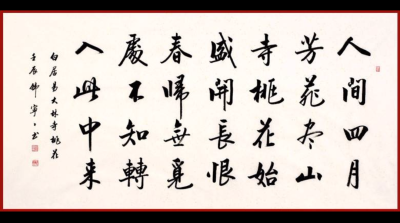 人間四月
芳菲尽山
寺桃花始
盛開長恨
春歸無覓
處不知轉
入此中来
白居易大林寺桃花
壬辰